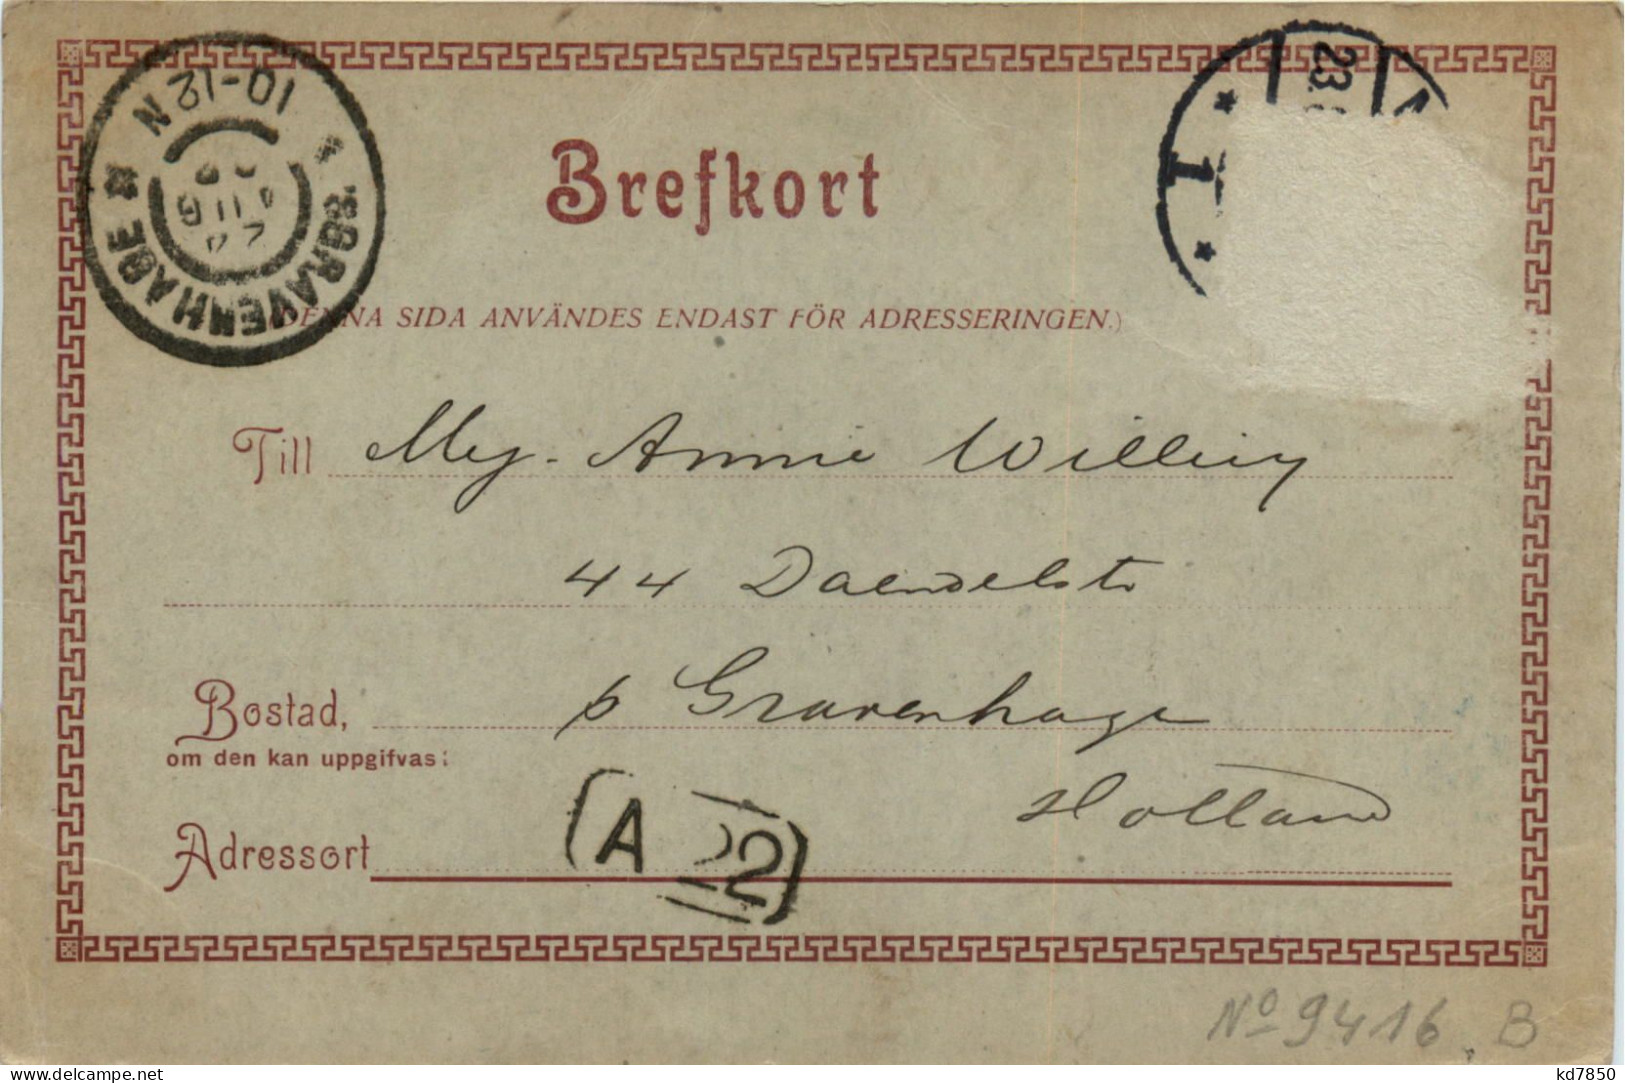 10-12N
'SGRAVENHAGE
23.
1
Brefkort
(DENNA SIDA ANVÄNDES ENDAST FÖR ADRESSERINGEN.)
Till Mej. Annie Willing
44 Daendelstr
Bostad, s Gravenhage
om den kan uppgifvas:
Holland
Adressort
A 22
No 9416 B
Delcampe.net
kd7850